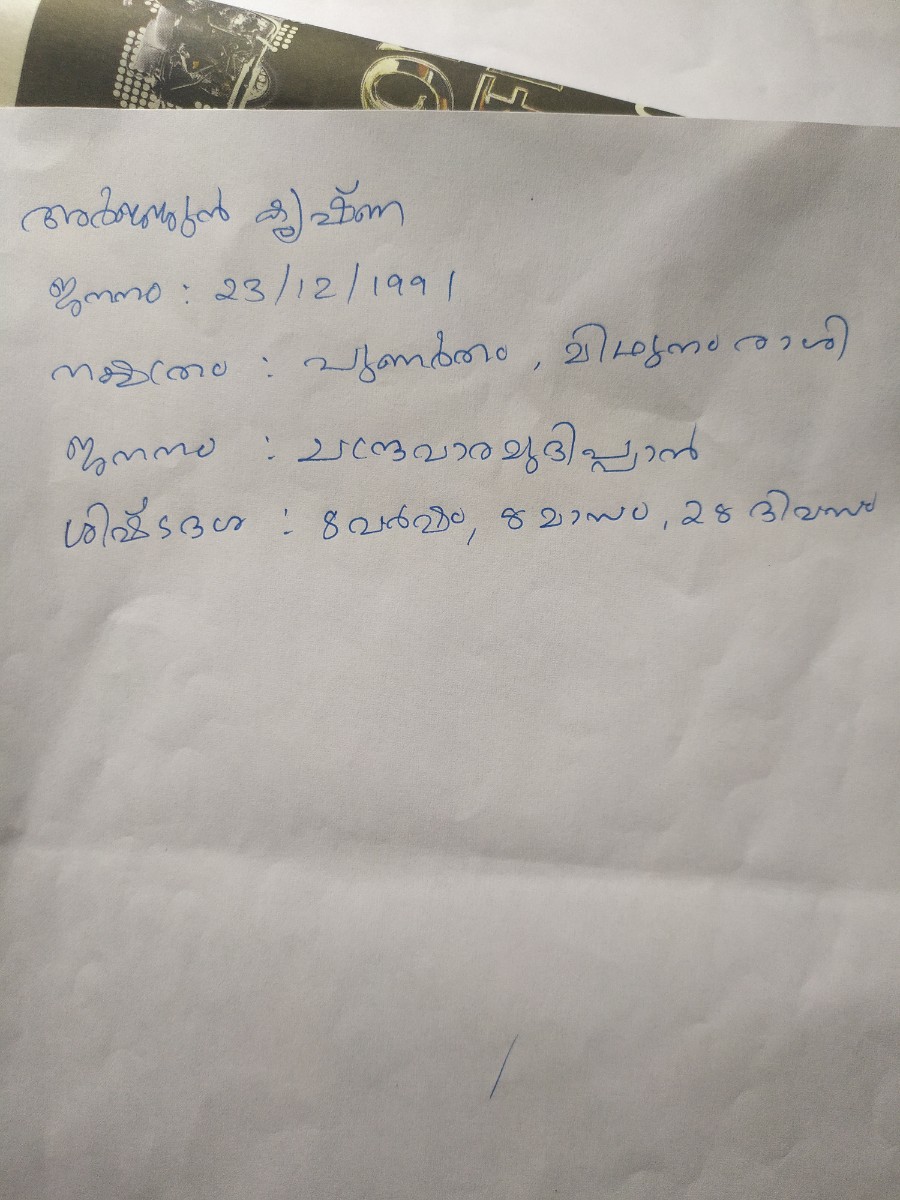 അർജ്ജുൻ കൃഷ്ണ
ജനനം : 23/12/1991
നക്ഷത്രം : പുണർതം , മിഥുനം രാശി
ജനനം : ചന്ദ്രവാരമുദിപ്പാൻ
ശിഷ്ടദശ : 8 വർഷം, 8 മാസം , 28 ദിവസം